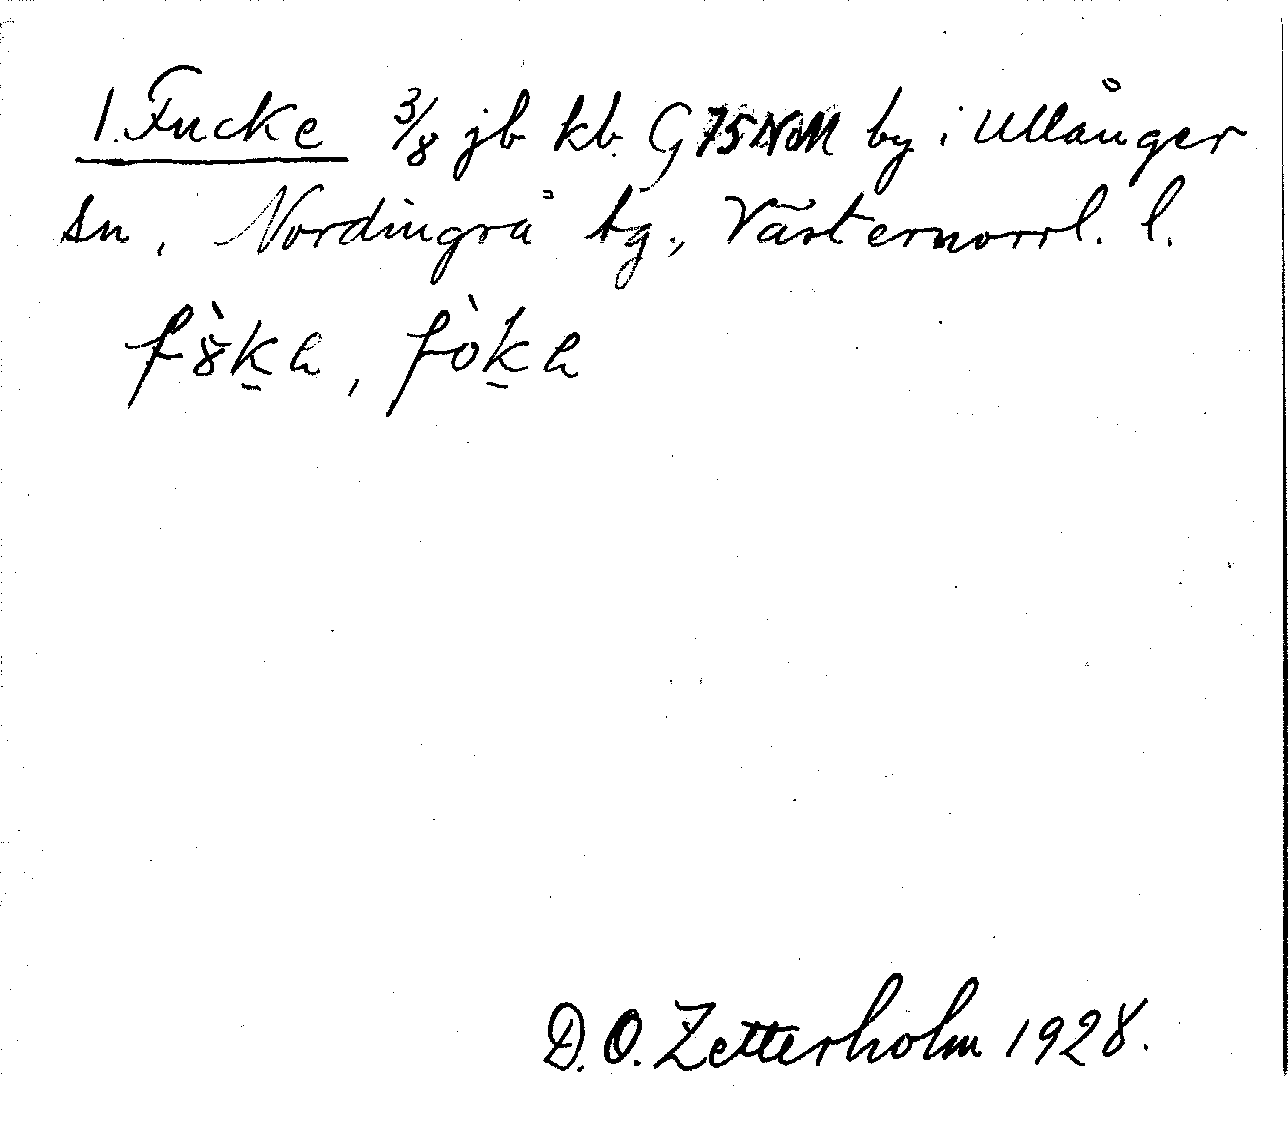 1. Fucke 3/8 jb kb. G75NvM by i Ullånger
sn, Nordingrå tg., Västernorrl. l.
f8̀k̠a, fòk̠a
D. O. Zetterholm 1928.